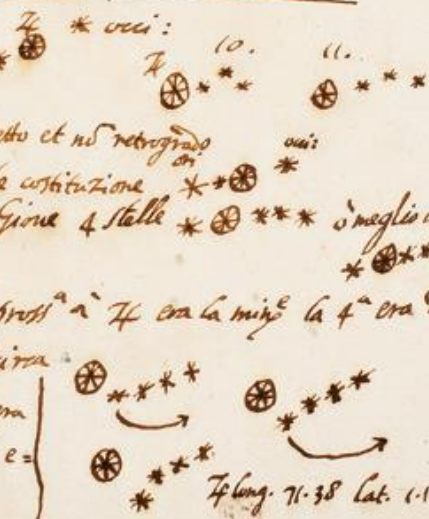 ♃ occi:
♃ 10. 11.
etto et nō retrogrado
ori occi:
e costituzione
Gioue 4 stelle ò meglio
à ♃ era la minᵉ la 4ᵃ era
circa
era
e =
♃ long. 71.38 lat.